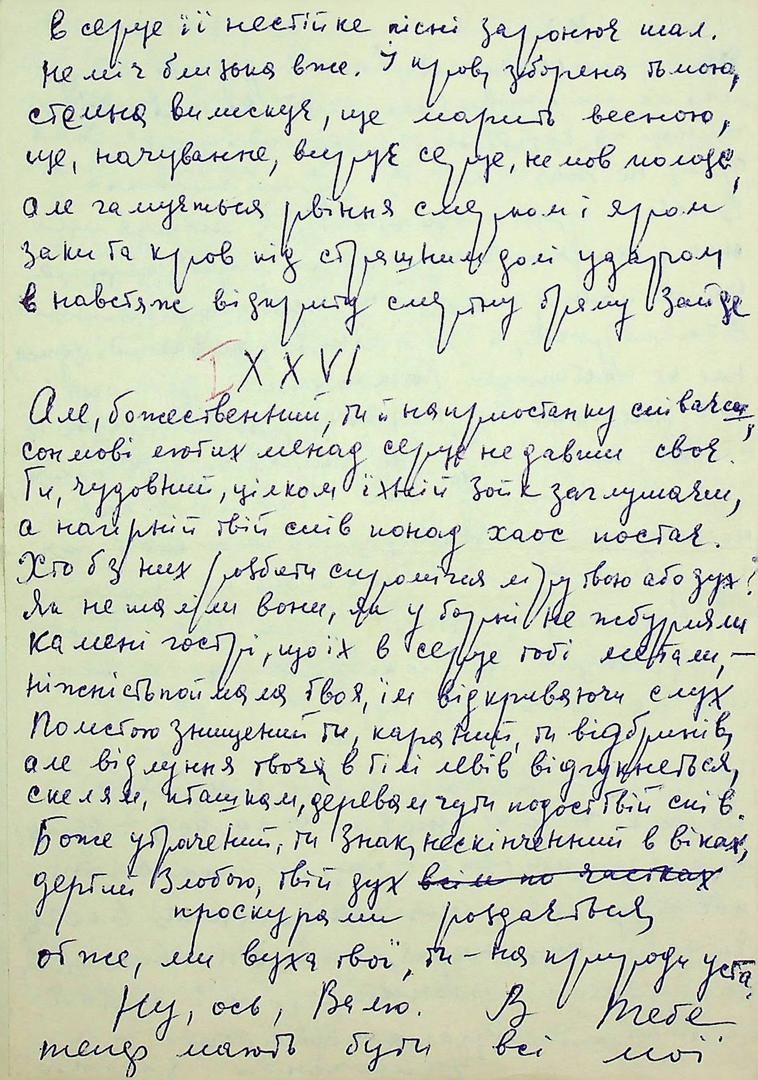 в серце її нестійке пісні заронює шал.
Неміч близька вже. І кров, зборена тьмою,
стемна вилискує, ще марить весною,
ще, начування, вирує серце, немов молоде,
але гамується рвіння смерком і яром
заки та кров під страшним долі ударом
в навстяж відкриту смертну браму зайде
IXXVI
Але, божественний, ти й наприостанку співаєш,
сонмові лютих менад серце не давши своє.
Ти, чудовний, цілком їхній зойк заглушаєш,
а нагірній твій спів понад хаос постає.
Хто б з них розбити спромігся ліру твою або зух?
Як не шаліли вони, як у борні не жбурляли
камені гострі, що їх в серце тобі метали, —
ніжність поймала твоя, їм відкриваючи слух
Помстою знищений ти, караний, ти відбринів,
але відлуння твоє в тілі левів відгукнеться,
скелям, пташкам, деревам чути подосі твій спів.
Боже утрачений, ти знак, нескінченний в віках,
дертий Злобою, твій дух всім по частках
проскурами роздається,
отже, ми вуха твої, ти — на природи уста.
Ну, ось, Валю. В Тебе
тепер мають бути всі мої